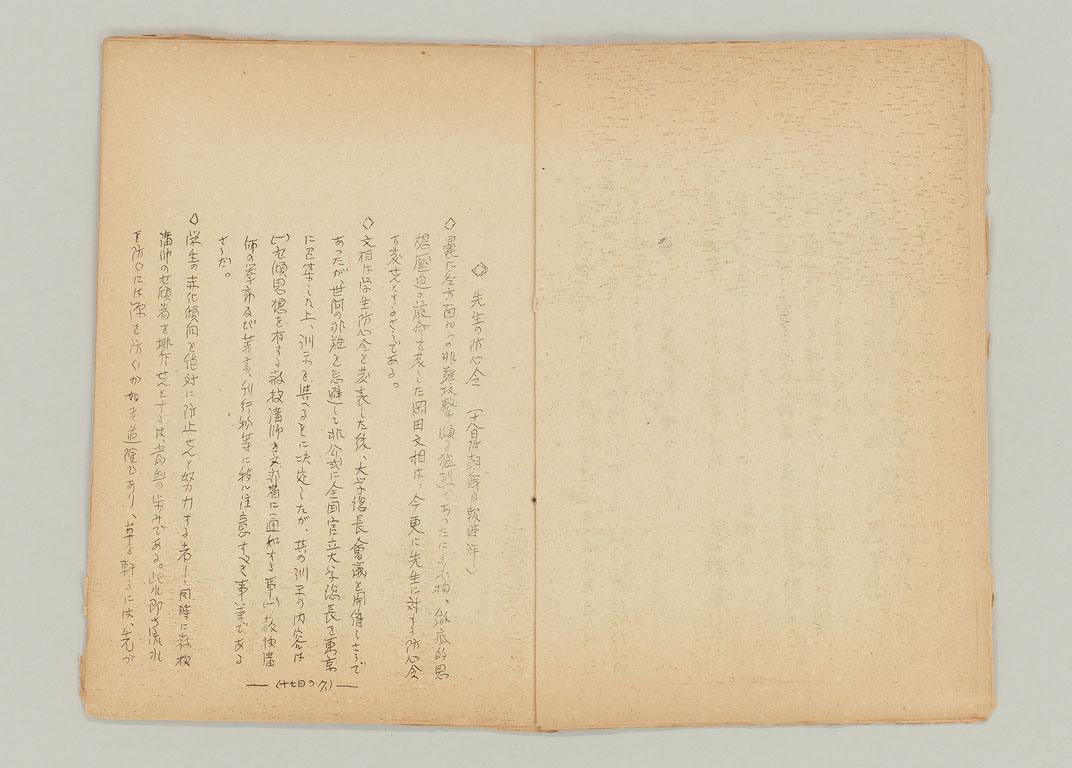 先生の防心令 (十八日附朝鮮日報時評)
◇ 曩に各方面からの非難攻撃頗る猛烈であったにも不拘、徹底的思
想壓迫の厳命を発した岡田文相は、今更に先生に対する防心令
を発せんとするさうである。
◇ 文相は学生防心令を発表した後、大学総長会議を開催しさうで
あったが世間の非難を忌避して非公式に全国官立大学総長を東京
に召集した上、訓示を与へることに決定したが、其の訓示の内容は
(一)左傾思想を有する教授講師を文部省に通知する事(二)教授講
師の学説及び著書、刊行物等に特に注意すべき事等である
さうだ。
◇ 学生の赤化傾向を絶対に防止せんと努力する者が同時に教授
講師の左傾者を排斥せんとするは当然の歩みである。此れ即ち流れ
を防ぐには源を防ぐが如き道理であり、草を刈るには、先づ